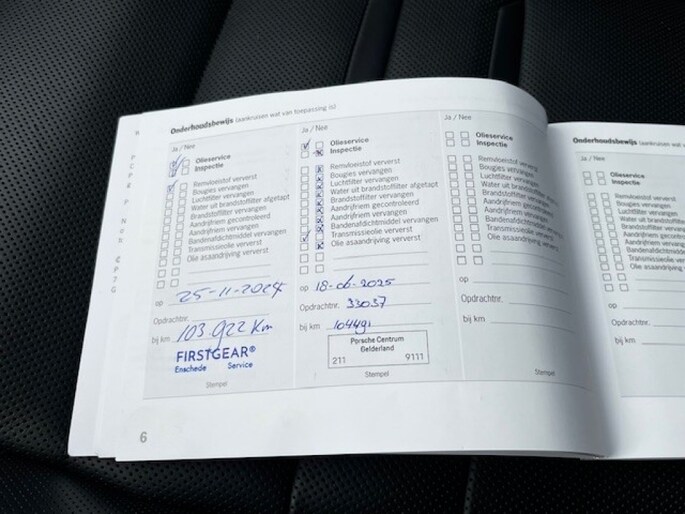 Onderhoudsbewijs (aankruisen wat van toepassing is)
Ja / Nee
Olieservice
Inspectie
Remvloeistof ververst
Bougies vervangen
Luchtfilter vervangen
Water uit brandstoffilter afgetapt
Brandstoffilter vervangen
Aandrijfriem gecontroleerd
Aandrijfriem vervangen
Bandenafdichtmiddel vervangen
Transmissieolie ververst
Olie asaandrijving ververst
op 25-11-2024
Opdrachtnr.
bij km 103.922 Km
FIRSTGEAR®
Enschede Service
Stempel
6
Ja / Nee
Olieservice
Inspectie
Remvloeistof ververst
Bougies vervangen
Luchtfilter vervangen
Water uit brandstoffilter afgetapt
Brandstoffilter vervangen
Aandrijfriem gecontroleerd
Aandrijfriem vervangen
Bandenafdichtmiddel vervangen
Transmissieolie ververst
Olie asaandrijving ververst
op 18-06-2025
Opdrachtnr. 33037
bij km 104491
Porsche Centrum
Gelderland
211 9111
Stempel
Ja / Nee
Olieservice
Inspectie
Remvloeistof ververst
Bougies vervangen
Luchtfilter vervangen
Water uit brandstoffilter afgetapt
Brandstoffilter vervangen
Aandrijfriem gecontroleerd
Aandrijfriem vervangen
Bandenafdichtmiddel vervangen
Transmissieolie ververst
Olie asaandrijving ververst
op
Opdrachtnr.
bij km
Stempel
Onderhoudsbewijs (aankruisen wat van
Ja / Nee
Olieservice
Inspectie
Remvloeistof ververst
Bougies vervangen
Luchtfilter vervangen
Water uit brandstoffilter
Brandstoffilter vervangen
Aandrijfriem gecontroleerd
Aandrijfriem vervangen
Bandenafdichtmiddel
Transmissieolie ververst
Olie asaandrijving
op
Opdrachtnr.
bij km